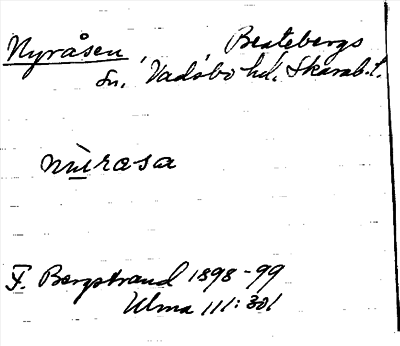 Nyråsen, , Beatebergs
sn, Vadsbo hd, Skarab. l.
nùrasa
F. Bergstrand 1898-99
Ulma 111:301